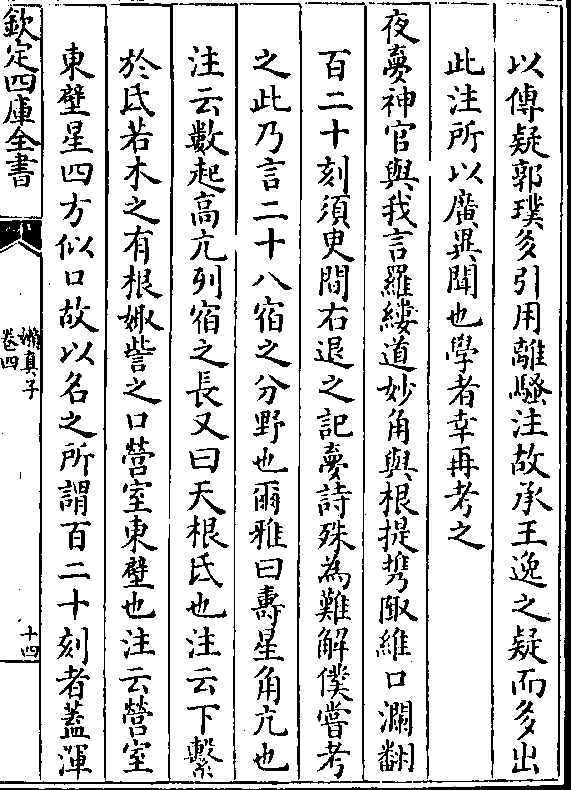 以傳疑郭璞多引用離騷注故承王逸之疑而多出
此注所以廣異聞也學者幸再考之
夜夣神官與我言羅縷道妙角與根提携陬維口瀾翻
百二十刻須臾間右退之記夣詩殊為難解僕嘗考
之此乃言二十八宿之分野也爾雅曰壽星角亢也
注云數起高亢列宿之長又曰天根氐也注云下繫
於氐若木之有根娵訾之口營室東壁也注云營室
東壁星四方似口故以名之所謂百二十刻者蓋渾
欽定四庫全書
嬾真子
卷四
十四